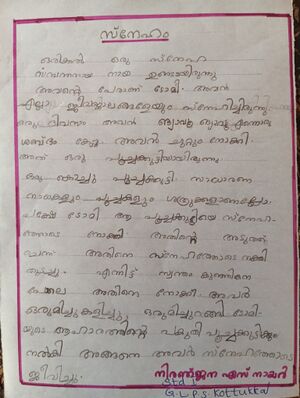 സ്നേഹം
ഒരിക്കൽ ഒരു സ്നേഹ
സമ്പന്നനായ നായ ഉണ്ടായിരുന്നു
അവന്റെ പേരാണ് ടോമി. അവൻ
എല്ലാ ജീവജാലങ്ങളേയും സ്നേഹിച്ചിരുന്നു.
ഒരു ദിവസം അവൻ മ്യാവൂ മ്യാവൂ എന്നൊരു
ശബ്ദം കേട്ടു. അവൻ ചുറ്റും നോക്കി.
അത് ഒരു പൂച്ചക്കുട്ടിയായിരുന്നു.
ഒരു കൊച്ചു പൂച്ചക്കുട്ടി. സാധാരണ
നായകളും പൂച്ചകളും ശത്രുക്കളാണല്ലോ.
പക്ഷേ ടോമി ആ പൂച്ചക്കുട്ടിയെ സ്നേഹ-
ത്തോടെ നോക്കി. അതിന്റെ അടുത്ത്
ചെന്ന് അതിനെ സ്നേഹത്തോടെ നക്കി
തുടച്ചു. എന്നിട്ട് സ്വന്തം കുഞ്ഞിനെ
പോലെ അതിനെ നോക്കി. അവർ
ഒരുമിച്ചു കളിച്ചും, ഒരുമിച്ചുറങ്ങി. ടോമി-
യുടെ ആഹാരത്തിന്റെ പകുതി പൂച്ചക്കുട്ടിക്കും
നൽകി. അങ്ങനെ അവർ സ്നേഹത്തോടെ
ജീവിച്ചു.
നിരഞ്ജന എസ് നായർ
Std I
G L P S Kottukkal